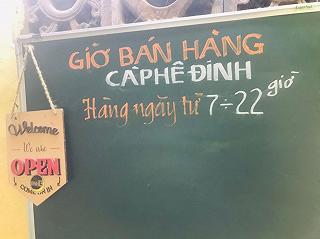 GIỜ BÁN HÀNG
CÀPHÊ ĐINH
Hàng ngày từ 7÷22 giờ
Welcome
We are
OPEN
COME ON IN